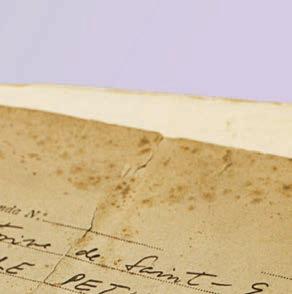 nda N.º
toine de Saint-
LE PET